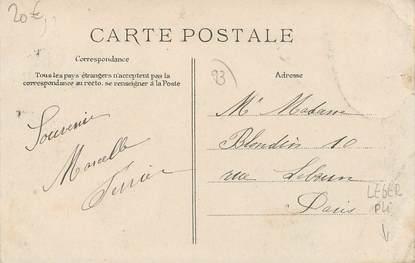 20€
CARTE POSTALE
Correspondance
Tous les pays étrangers n'acceptent pas la
correspondance au recto. se renseigner à la Poste
Souvenir
Marcelle
93
Adresse
Mr Madame
Blondin 10
rue Lebrun
Paris
LEGER
PLI